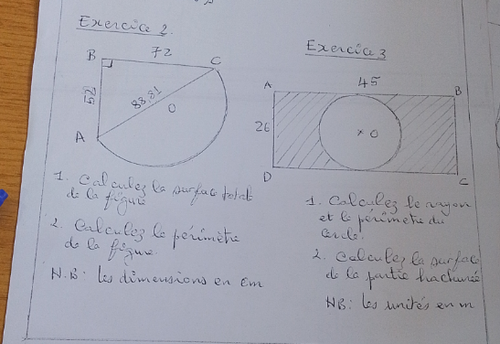 Exercice 2.
B 72 C
52
88.81
O
A
1. Calculez la surface totale
de la figure
2. Calculez le périmètre
de la figure.
N.B: les dimensions en cm
Exercice 3
45
A B
26
O
D C
1. Calculez le rayon
et le périmètre du
cercle.
2. Calculez la surface
de la partie hachurée
NB: les unités en m